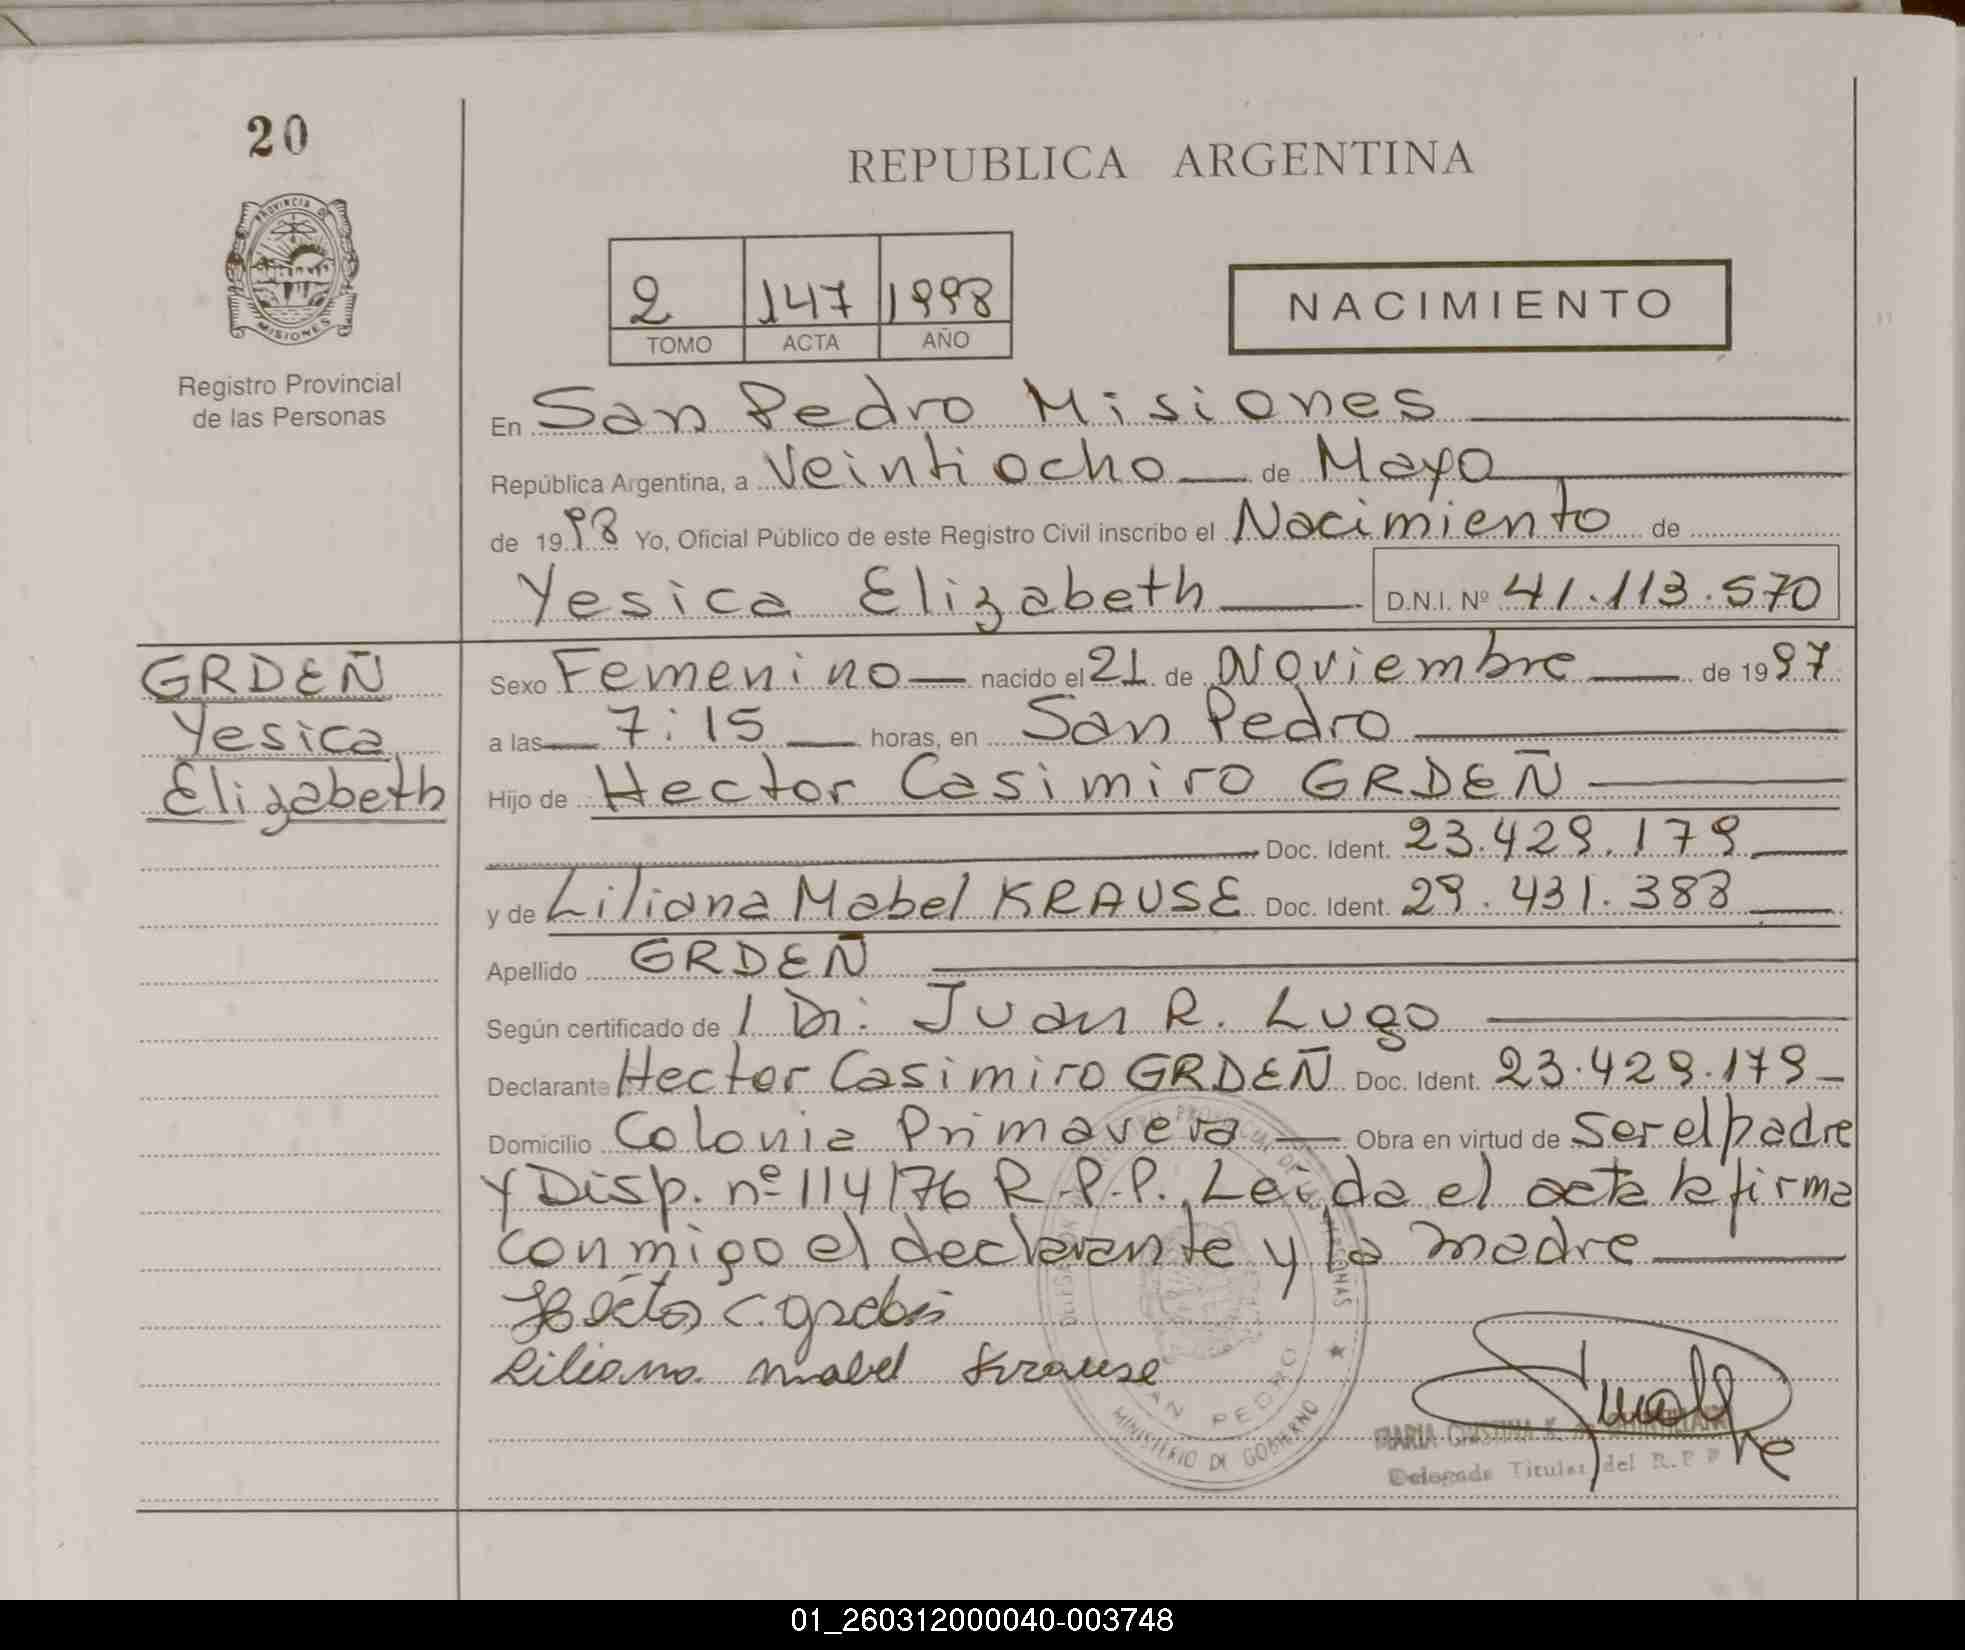 20
REPUBLICA ARGENTINA
PROVINCIA DE
MISIONES
Registro Provincial
de las Personas
2 147 1998
TOMO ACTA AÑO
NACIMIENTO
En San Pedro Misiones
República Argentina, a Veintiocho de Mayo
de 1998 Yo, Oficial Público de este Registro Civil inscribo el Nacimiento de
Yesica Elizabeth D.N.I. Nº 41.113.570
GRDEÑ
Yesica
Elizabeth
Sexo Femenino nacido el 21 de Noviembre de 1997
a las 7:15 horas, en San Pedro
Hijo de Hector Casimiro GRDEÑ
Doc. Ident. 23.429.179
y de Liliana Mabel KRAUSE Doc. Ident. 29.431.388
Apellido GRDEÑ
Según certificado de 1 Dr. Juan R. Lugo
Declarante Hector Casimiro GRDEÑ Doc. Ident. 23.429.179
Domicilio Colonia Primavera Obra en virtud de Ser el padre
y Disp. nº 114/76 R.P.P. Leida el acta la firma
conmigo el declarante y la madre
Hector C.
Liliana Mabel Krause
SAN PEDRO
MINISTERIO DE GOBIERNO
MARIA CRISTINA K. de
Delegada Titular del R.P.P
01_260312000040-003748